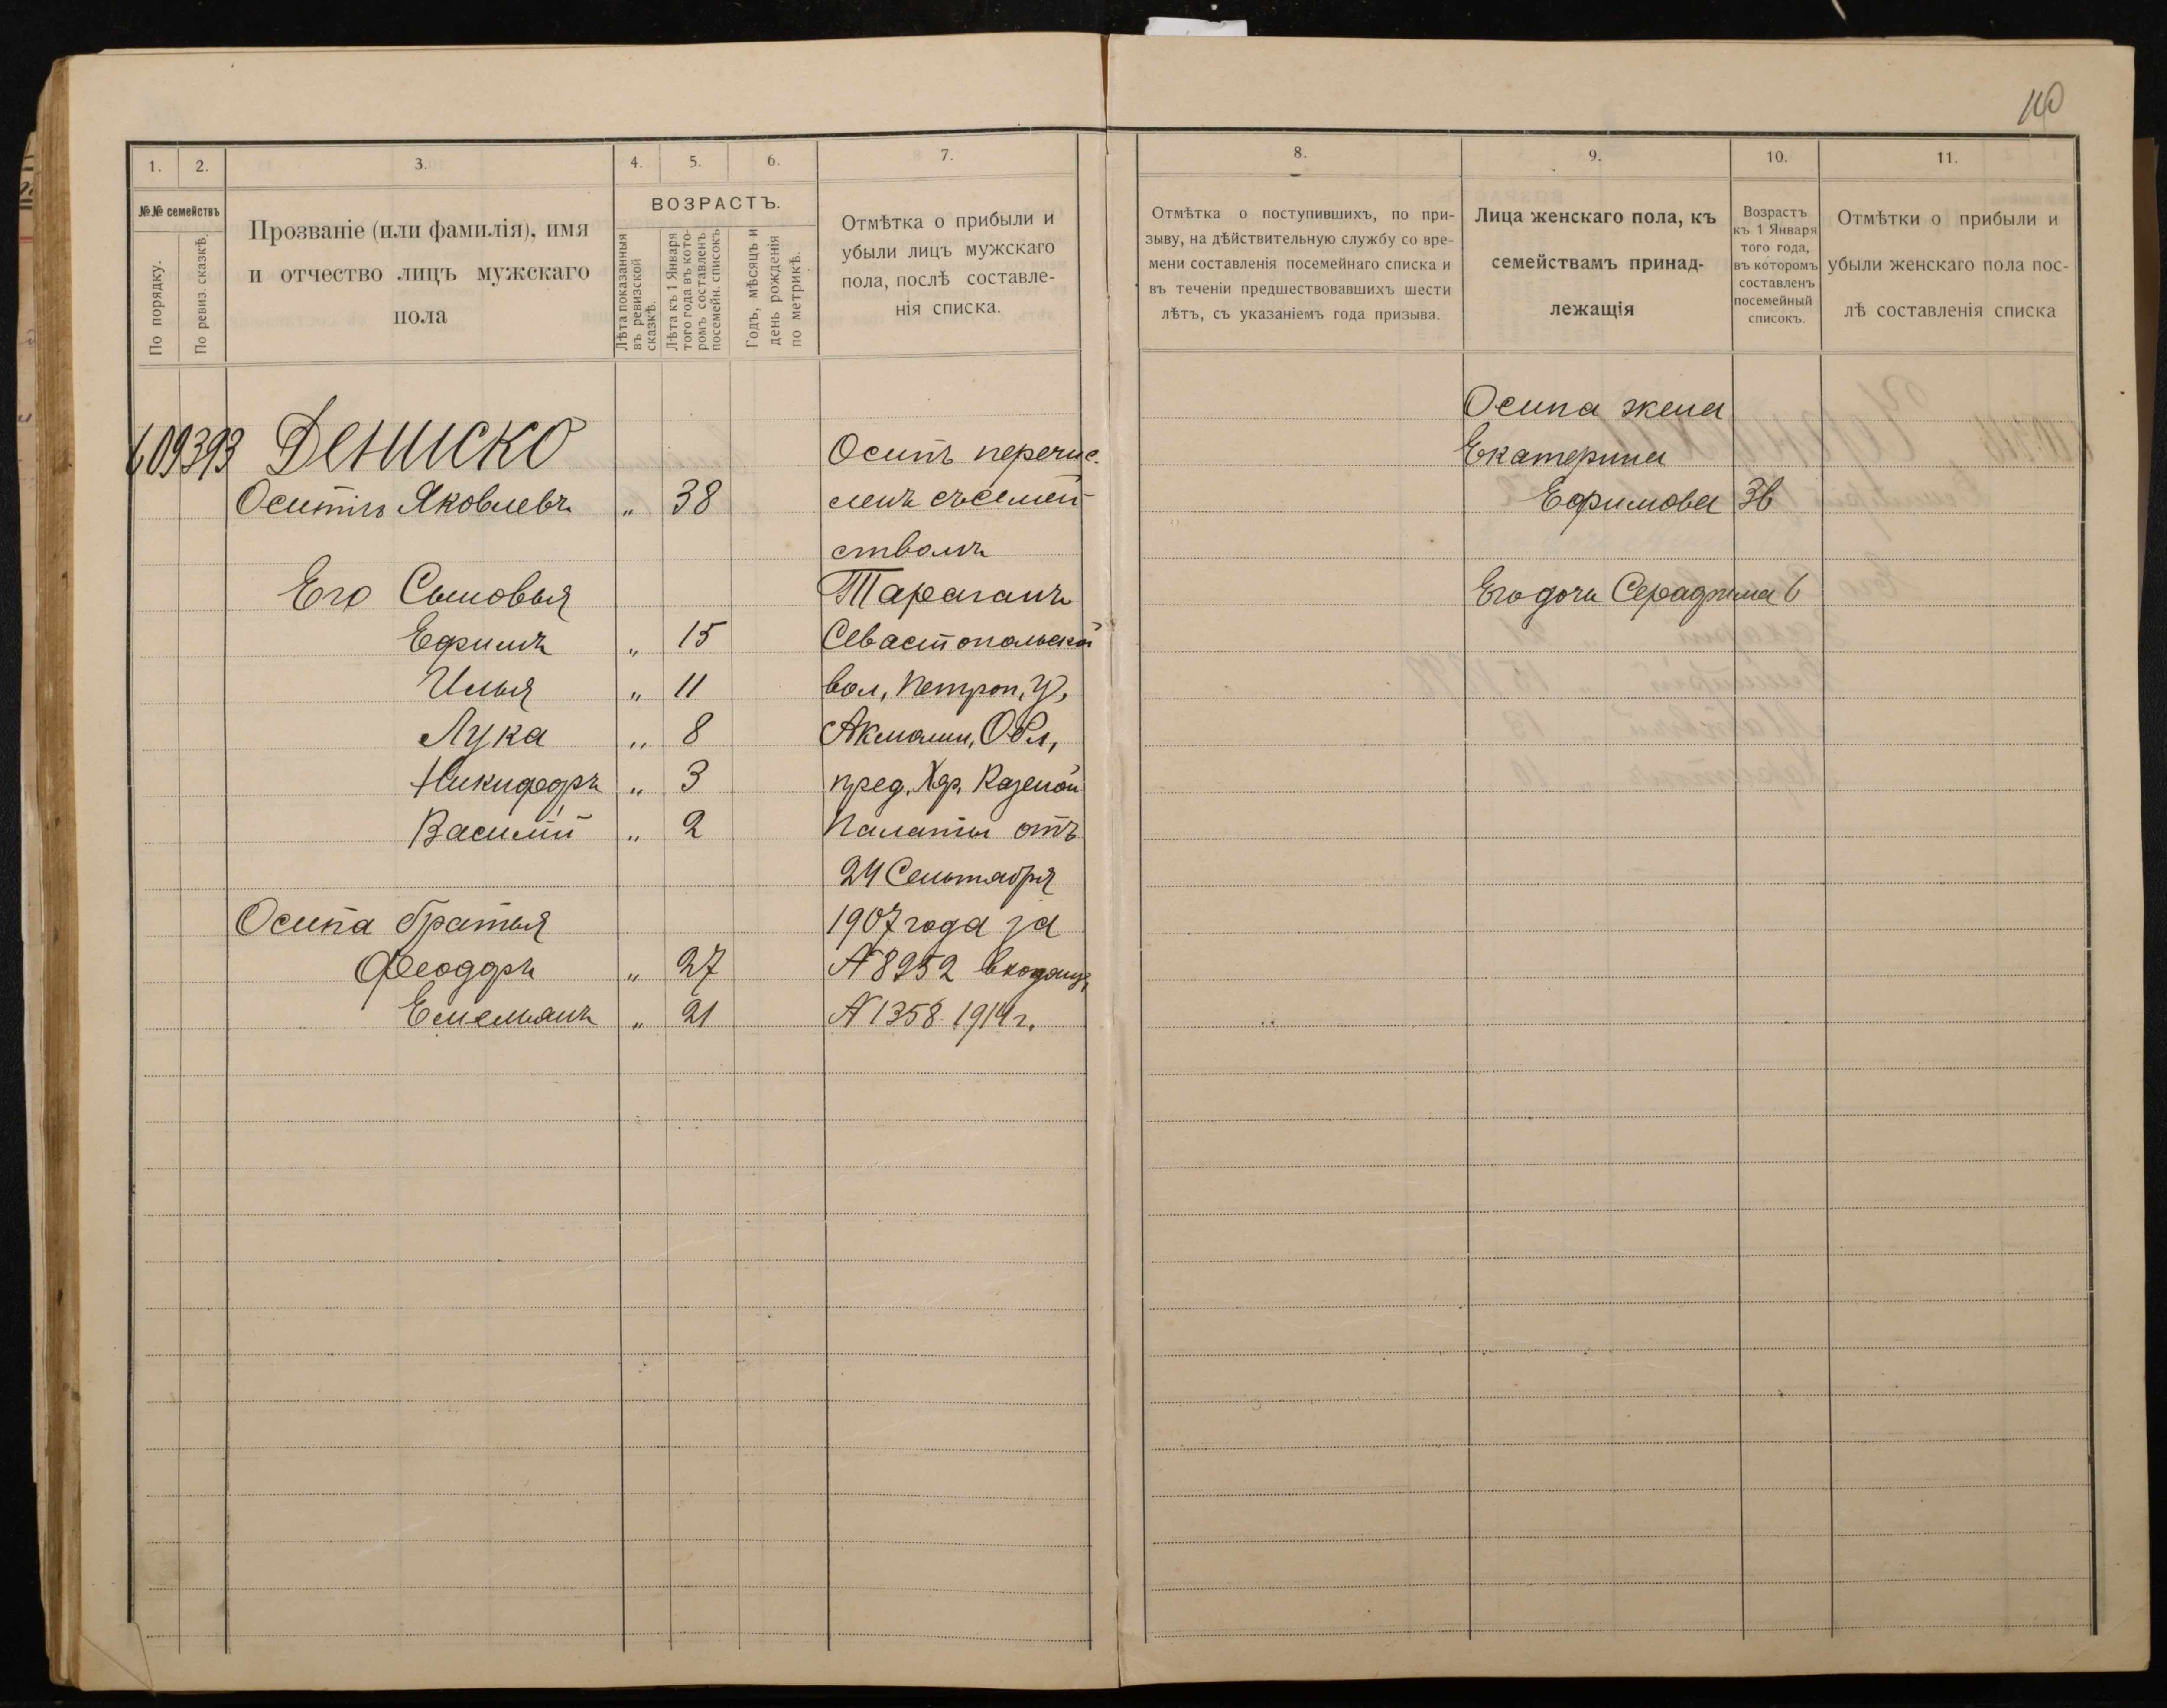 110
1. 2. 3. 4. 5. 6. 7.
№№ семействъ
По порядку.
По ревиз. сказкѣ.
Прозваніе (или фамилія), имя
и отчество лицъ мужскаго
пола
ВОЗРАСТЪ.
Лѣта показанныя
въ ревизской
сказкѣ.
Лѣта къ 1 Января
того года въ кото-
ромъ составленъ
посемейн. списокъ
Годъ, мѣсяцъ и
день рожденія
по метрикѣ.
Отмѣтка о прибыли и
убыли лицъ мужскаго
пола, послѣ составле-
нія списка.
609 393 Дениско
Осипъ Яковлевъ „ 38
Его Сыновья
Ефимъ „ 15
Илья „ 11
Лука „ 8
Никифоръ „ 3
Василій „ 2
Осипа братья
Феодоръ „ 27
Емельянъ „ 21
Осипъ перечис-
ленъ съ семей-
ствомъ
Севастопольской
вол, Петроп, У,
Акмолин, Обл,
пред, Хер, Казеной
Палаты отъ
24 Сентября
1907 года за
№ 8252 входящ,
№ 1358 1914 г.
8. 9. 10. 11.
Отмѣтка о поступившихъ, по при-
зыву, на дѣйствительную службу со вре-
мени составленія посемейнаго списка и
въ теченіи предшествовавшихъ шести
лѣтъ, съ указаніемъ года призыва.
Лица женскаго пола, къ
семействамъ принад-
лежащія
Возрастъ
къ 1 Января
того года,
въ которомъ
составленъ
посемейный
списокъ.
Отмѣтки о прибыли и
убыли женскаго пола пос-
лѣ составленія списка
Осипа жена
Екатерина
Ефимова 36
Его дочь Серафима 6